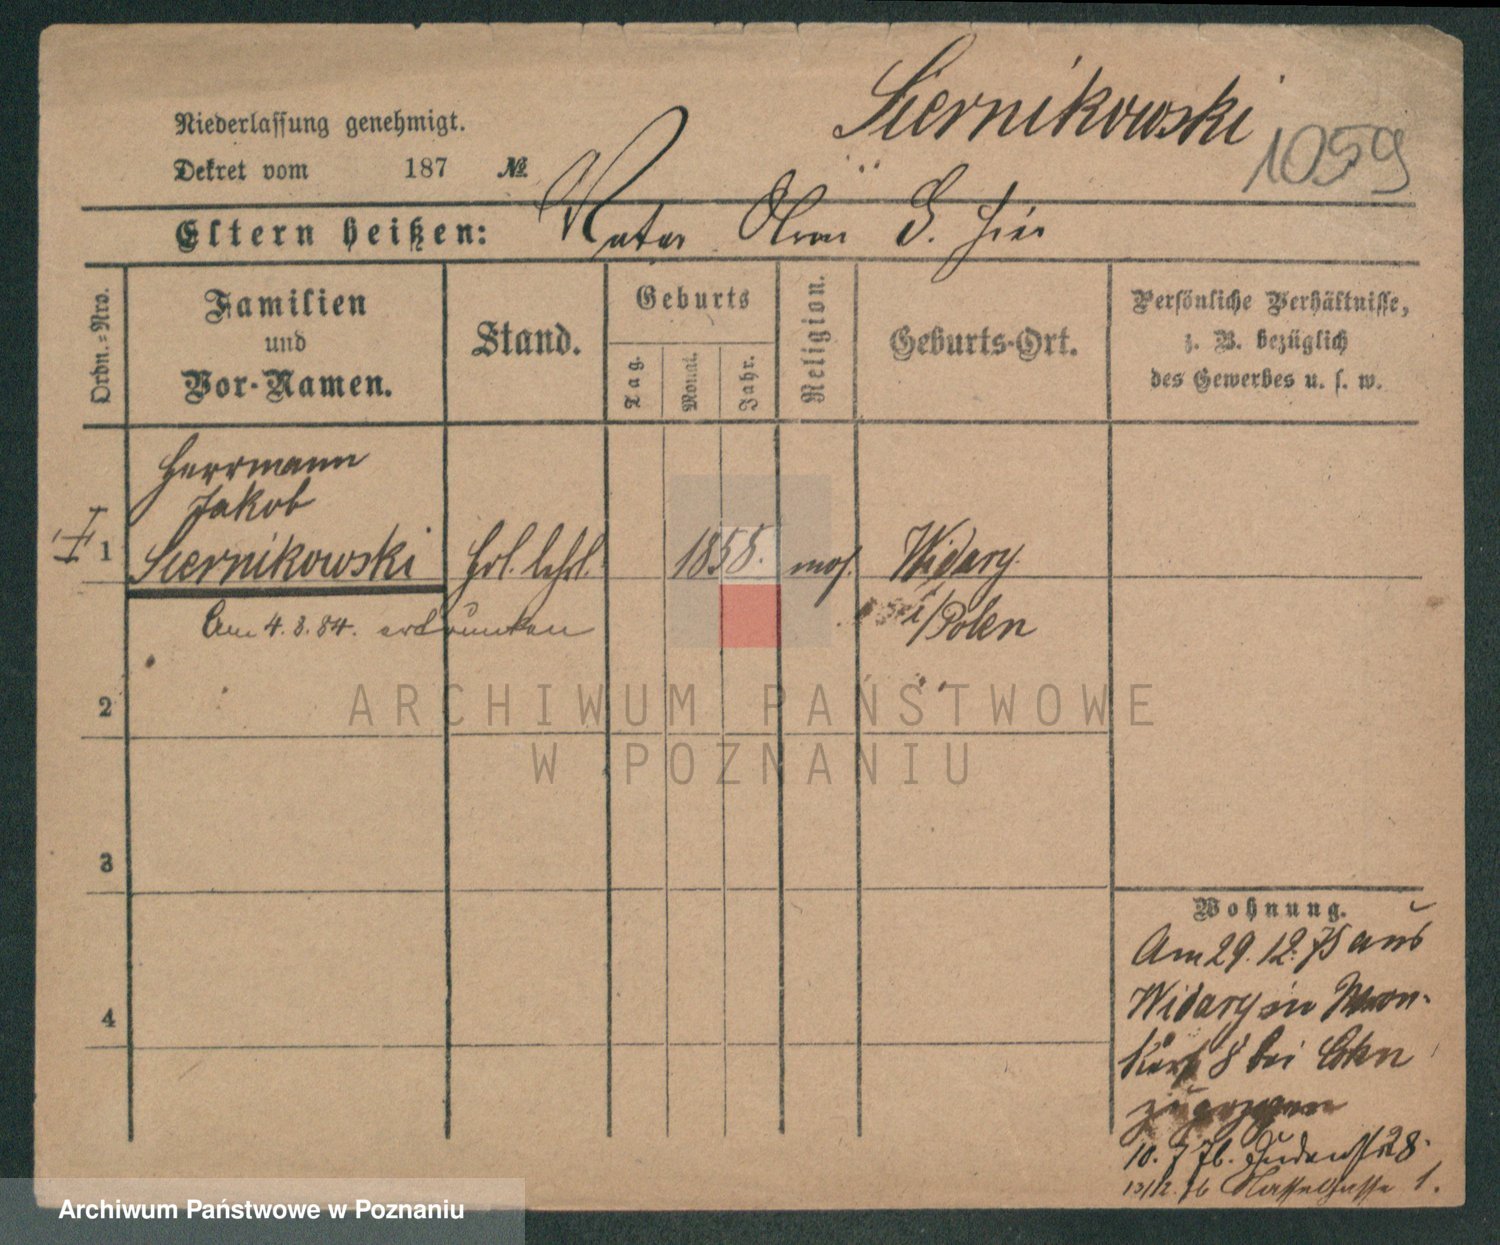 Siernikowski
1059
Niederlassung genehmigt.
Dekret vom 187 №
Eltern heißen: Vater S. hier
Ordn.-Nro.
Familien
und
Vor-Namen.
Stand.
Geburts
Tag.
Monat.
Jahr.
Religion.
Geburts-Ort.
Persönliche Verhältnisse,
z. B. bezüglich
des Gewerbes u. s. w.
Herrmann
Jakob
I 1 Siernikowski Hdl. lehrl. 1855. mos. Widary
i/Polen
Am 4. 8. 84. ertrunken
2
3
4
Wohnung.
Am 29. 12. 75 aus
Widary in
8 bei Cohn
zugezogen
10. 7 76. Judenstr 28.
13/12. 76 1.
ARCHIWUM PAŃSTWOWE
W POZNANIU
Archiwum Państwowe w Poznaniu